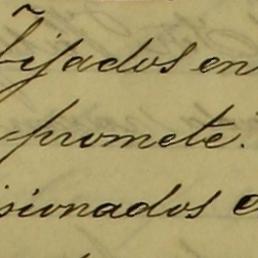 fijados en
promete.
sionados e